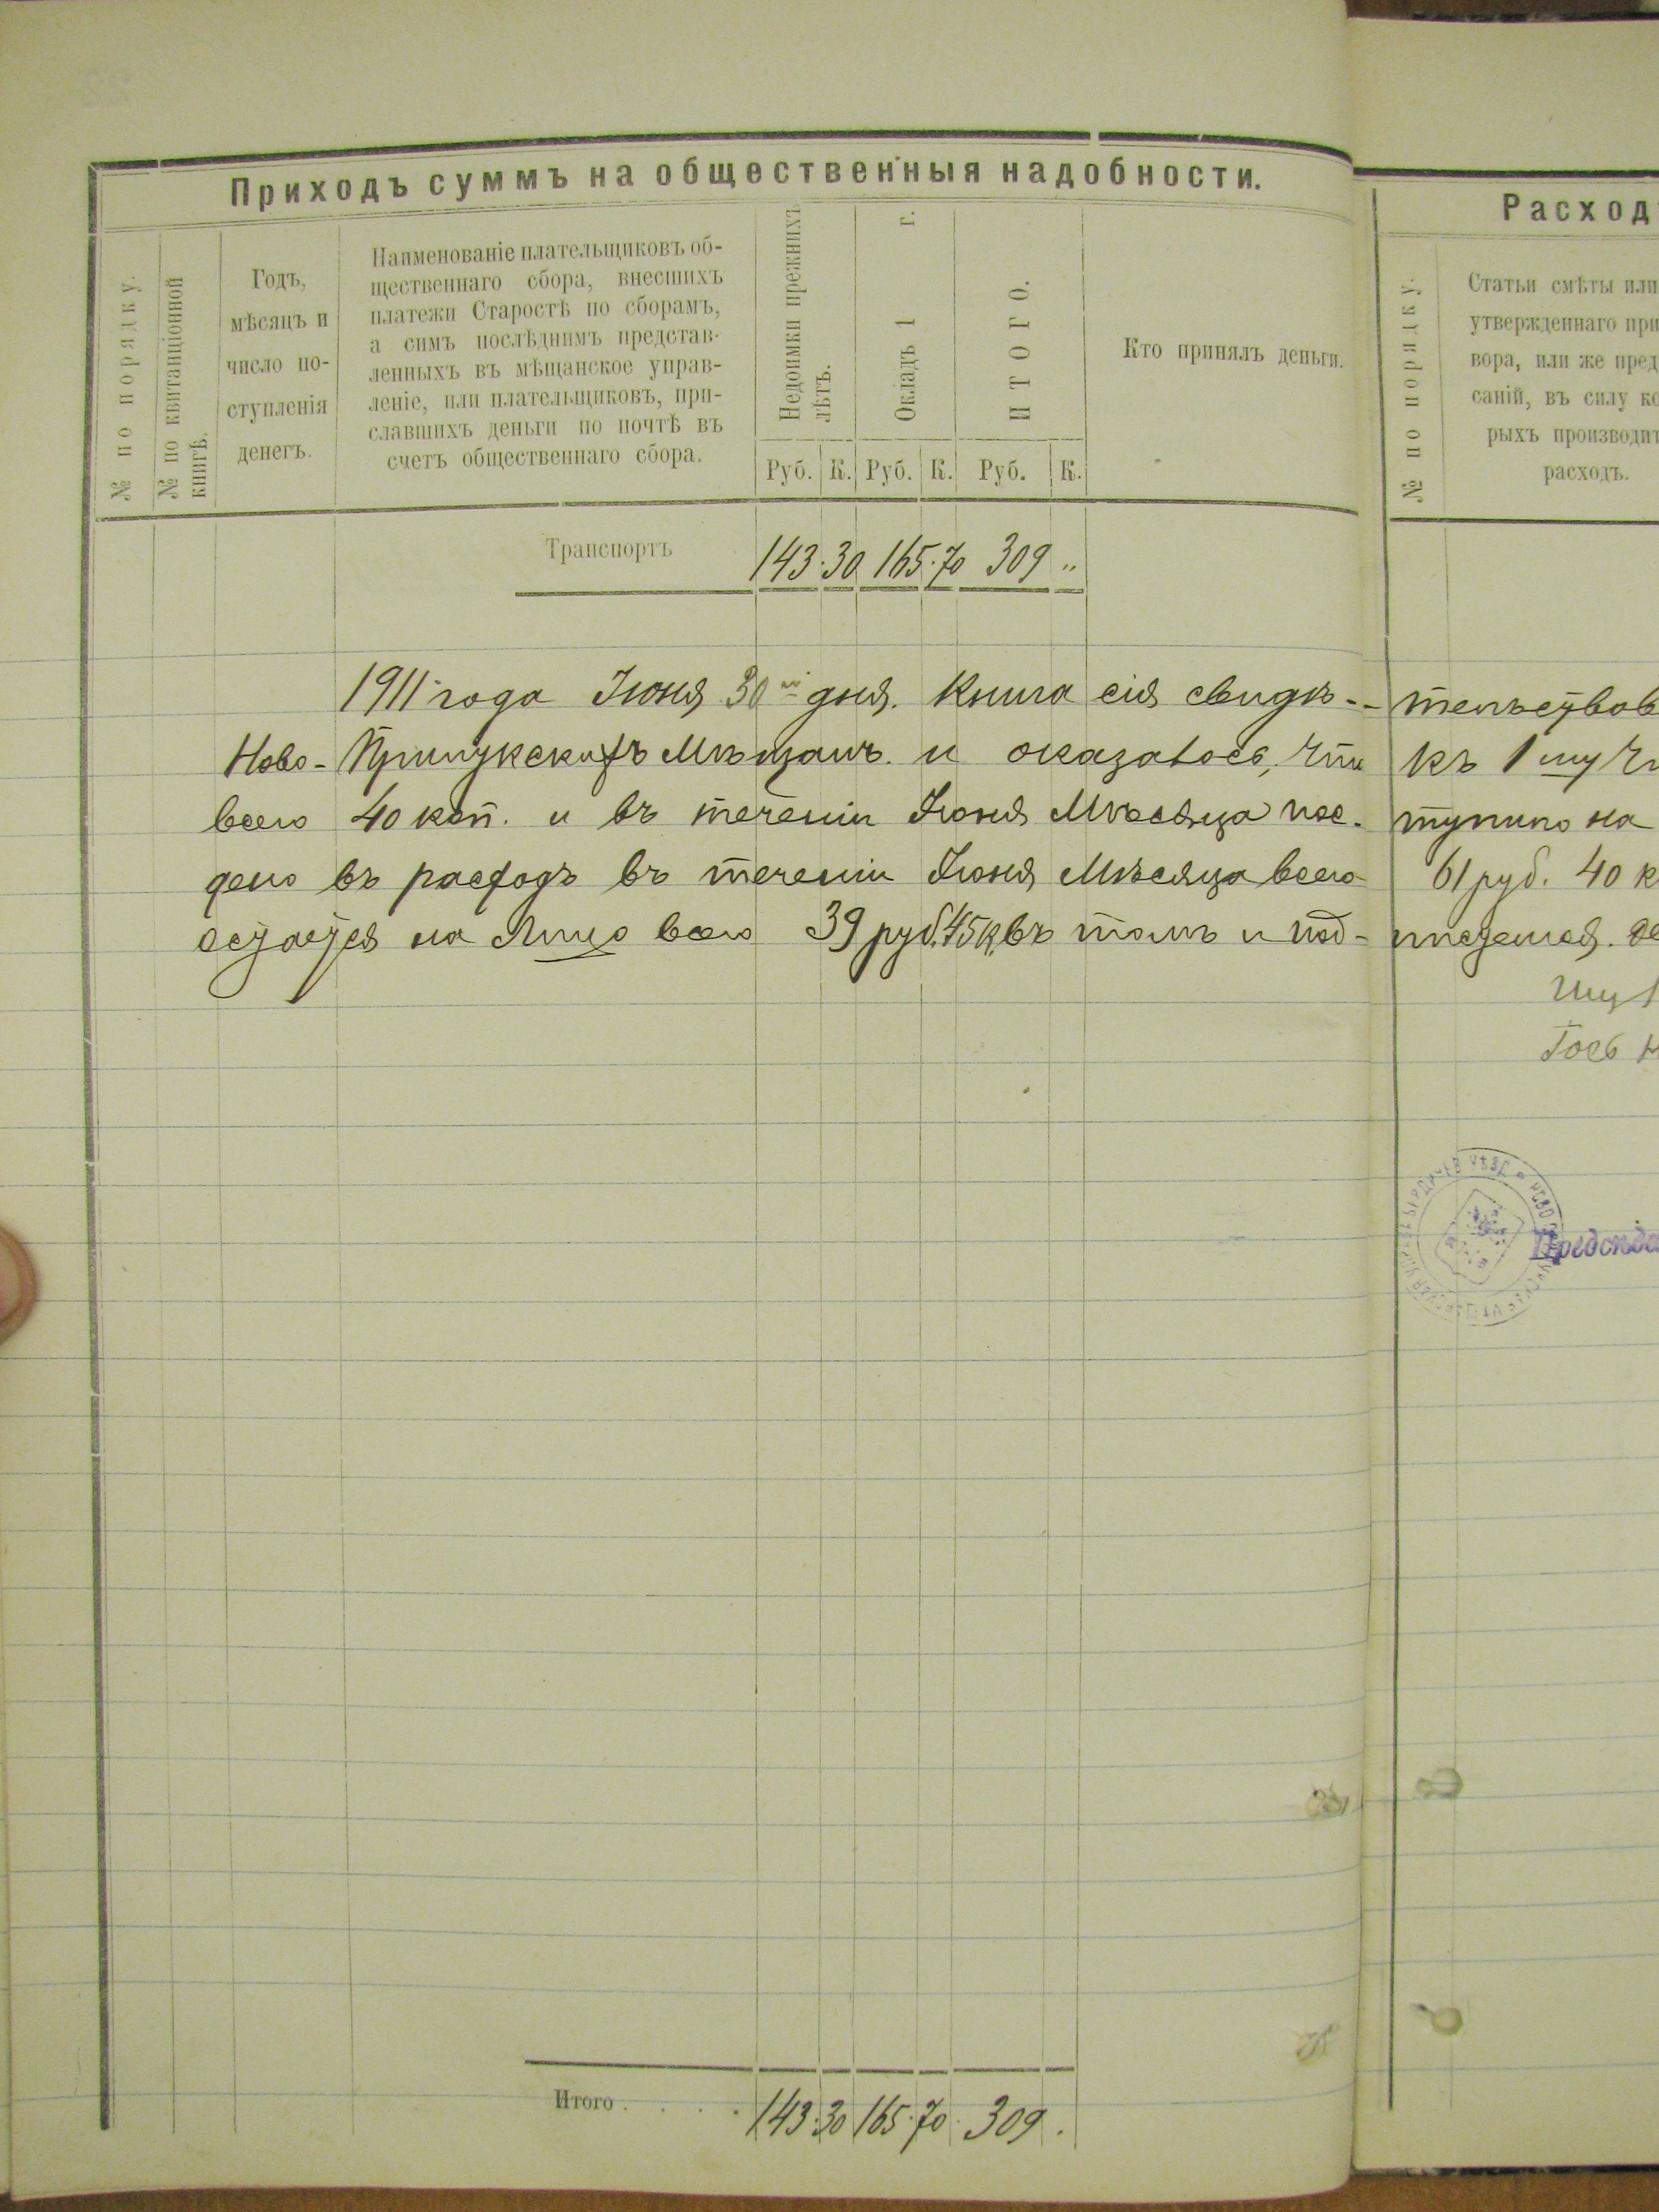 Приходъ суммъ на общественныя надобности.
№ по порядку.
№ по квитанціонной
книгѣ.
Годъ,
мѣсяцъ и
число по-
ступленія
денегъ.
Наименованіе плательщиковъ об-
щественнаго сбора, внесшихъ
платежи Старостѣ по сборамъ,
а симъ послѣднимъ представ-
ленныхъ въ мѣщанское управ-
леніе, или плательщиковъ, при-
славшихъ деньги по почтѣ въ
счетъ общественнаго сбора.
Недоимки прежнихъ
лѣтъ.
Окладъ 1 г.
ИТОГО.
Руб. К. Руб. К. Руб. К.
Кто принялъ деньги.
Транспортъ 143 · 30 165 · 70 309 "
1911 года Іюня 30 дня. Книга сія свидѣ-
Ново-Прилукскихъ Мѣщанъ и оказалось, что
всего 40 коп. и въ теченіи Іюня Мѣсяца пос-
дено въ расходъ въ теченіи Іюня Мѣсяца всего
остается на Лицо всего 39 руб. 45 к, въ томъ и под-
Итого . . . . 143 · 30 165 · 70 · 309 .
Расход
№ по порядку.
Статьи смѣты или
утвержденнаго при
вора, или же пред
саній, въ силу ко
рыхъ производит
расходъ.
тельствов
къ 1 му
тупило на
61 руб. 40 к
писуемся.
Предсѣда